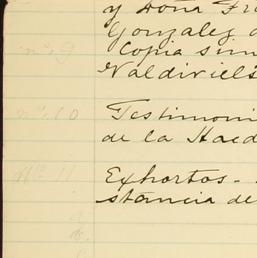 y Doña Fra
Gonzalez d
no. 9 Copia sim
Valdiviels
no. 10 Testimoni
de la Haed
No. 11 Exhortos. -
stancia de